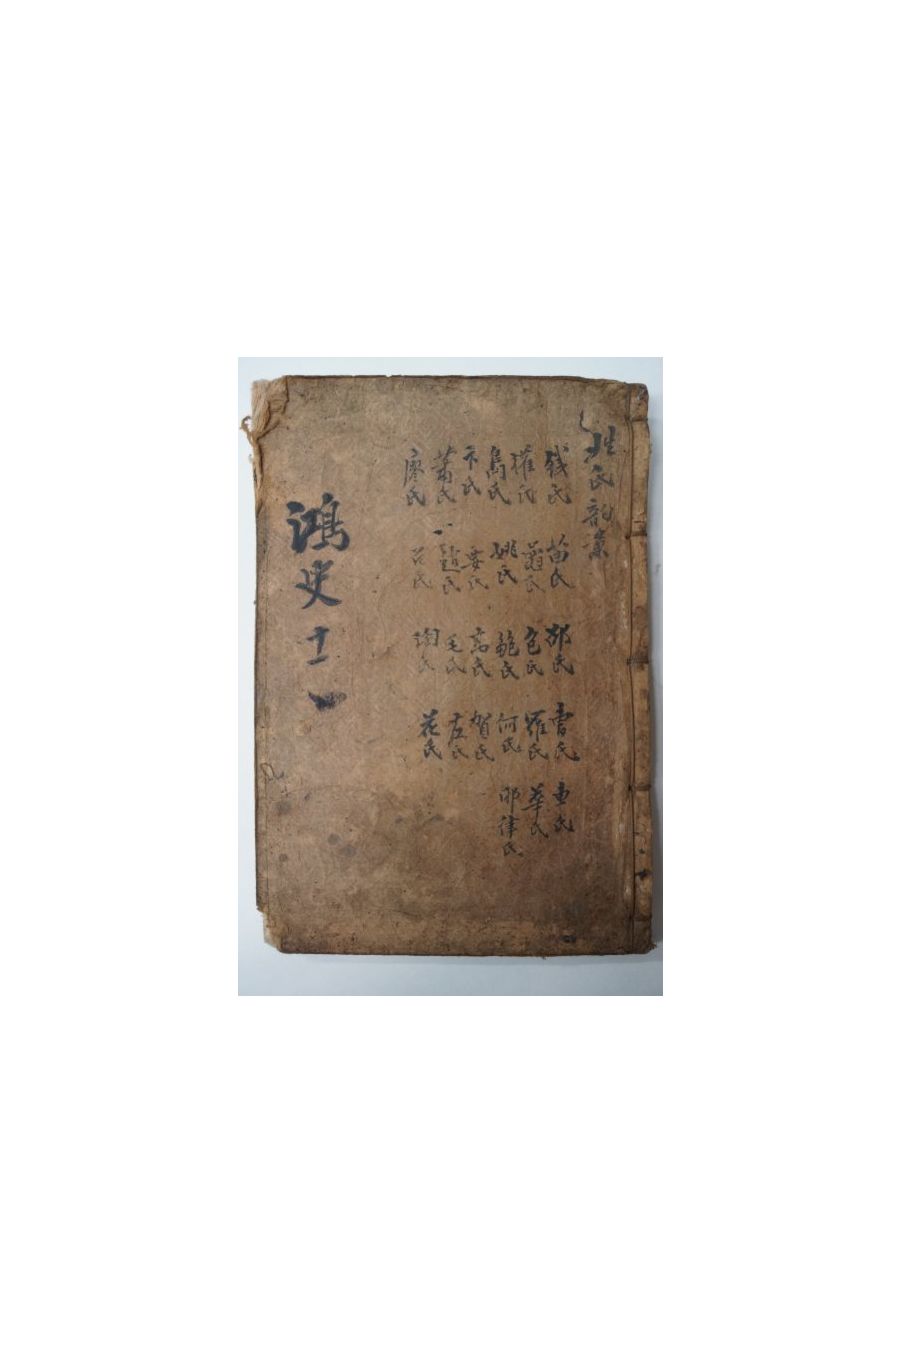 姓氏韵彙
錢氏 苗氏 邵氏 曹氏 車氏
權氏 蕭氏 包氏 羅氏 華氏
焉氏 姚氏 鮑氏 何氏 耶律氏
卞氏 婁氏 高氏 賀氏
萧氏 趙氏 毛氏 左氏
廖氏 召氏 陶氏 花氏
鴻史 十一